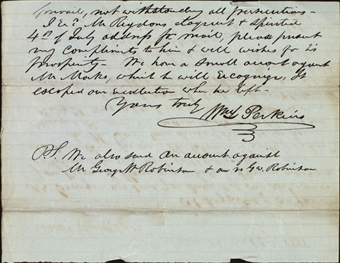 prevail, notwithstanding all persecutions -
I Mr. Reynolds eloquent & spirited
4th of July address pr mail, please present
my compliments to him & well wishes for his
prosperity. We have a small account against
Mr. Marks, which he will recognize, It
escaped our recollection when he left.
Yours truly
Wm Perkins
P.S. We also send an account against
Mr George W Robinson & Robinson